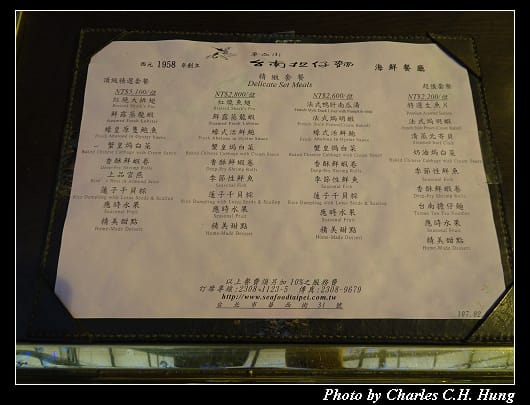 華西街
西元 1958 年創立
台南担仔麵
海鮮餐廳
精緻套餐
Delicate Set Meals
頂級精選套餐
超值套餐
NT$5,100/位
紅燒大排翅
鮮露蒸龍蝦
Steamed Fresh Lobster
蠔皇原隻鮑魚
蟹皇焗白菜
Baked Chinese Cabbage with Cream Sauce
香酥鮮蝦卷
Deep-Fry Shrimp Rolls
上品官燕
蓮子干貝粽
Rice Dumpling with Lotus Seeds & Scallop
應時水果
Seasonal Fruit
精美甜點
Home-Made Dessert
NT$2,800/位
紅燒魚翅
鮮露蒸龍蝦
Steamed Fresh Lobster
蠔式活鮮鮑
蟹皇焗白菜
Baked Chinese Cabbage with Cream Sauce
香酥鮮蝦卷
Deep-Fry Shrimp Rolls
季節性鮮魚
Seasonal Fish
蓮子干貝粽
Rice Dumpling with Lotus Seeds & Scallop
應時水果
Seasonal Fruit
精美甜點
Home-Made Dessert
NT$2,600/位
法式鴨肝南瓜湯
法式焗明蝦
蠔式活鮮鮑
蟹皇焗白菜
Baked Chinese Cabbage with Cream Sauce
香酥鮮蝦卷
Deep-Fry Shrimp Rolls
季節性鮮魚
Seasonal Fish
蓮子干貝粽
Rice Dumpling with Lotus Seeds & Scallop
應時水果
Seasonal Fruit
精美甜點
Home-Made Dessert
NT$2,200/位
特選生魚片
法式焗明蝦
清蒸元寶貝
奶油焗白菜
Baked Chinese Cabbage with Cream Sauce
香酥鮮蝦卷
Deep-Fry Shrimp Rolls
季節性鮮魚
Seasonal Fish
台南擔仔麵
Tainan Tan Tsu Noodles
應時水果
Seasonal Fruit
精美甜點
Home-Made Dessert
以上餐費須另加 10%之服務費
訂席專線:2308-1123-5 傳真:2308-9679
http://www.seafoodtaipei.com.tw
台北市華西街 31 號
107.02
Photo by Charles C.H. Hung